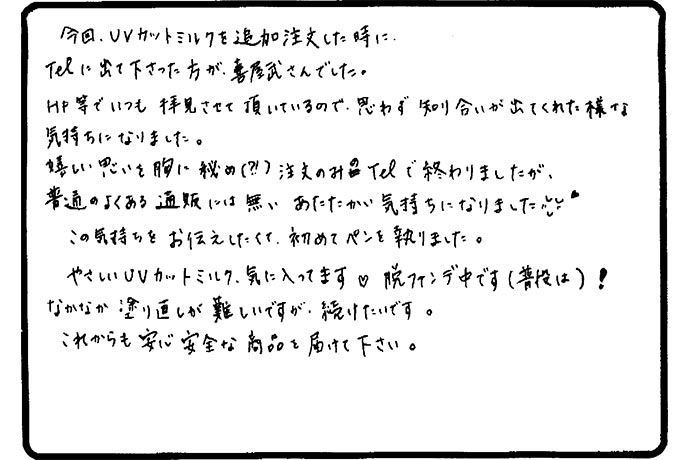 今回、UVカットミルクを追加注文した時に、
Telに出て下さった方が、喜屋武さんでした。
HP等でいつも拝見させて頂いているので、思わず知り合いが出てくれた様な
気持ちになりました。
嬉しい思いを胸に秘め(?!)注文のみTelで終わりましたが、
普通のよくある通販には無いあたたかい気持ちになりました
この気持ちをお伝えしたくて、初めてペンを執りました。
やさしいUVカットミルク、気に入ってます♡脱ファンデ中です(普段は)！
なかなか塗り直しが難しいですが、続けたいです。
これからも安心安全な商品を届けて下さい。